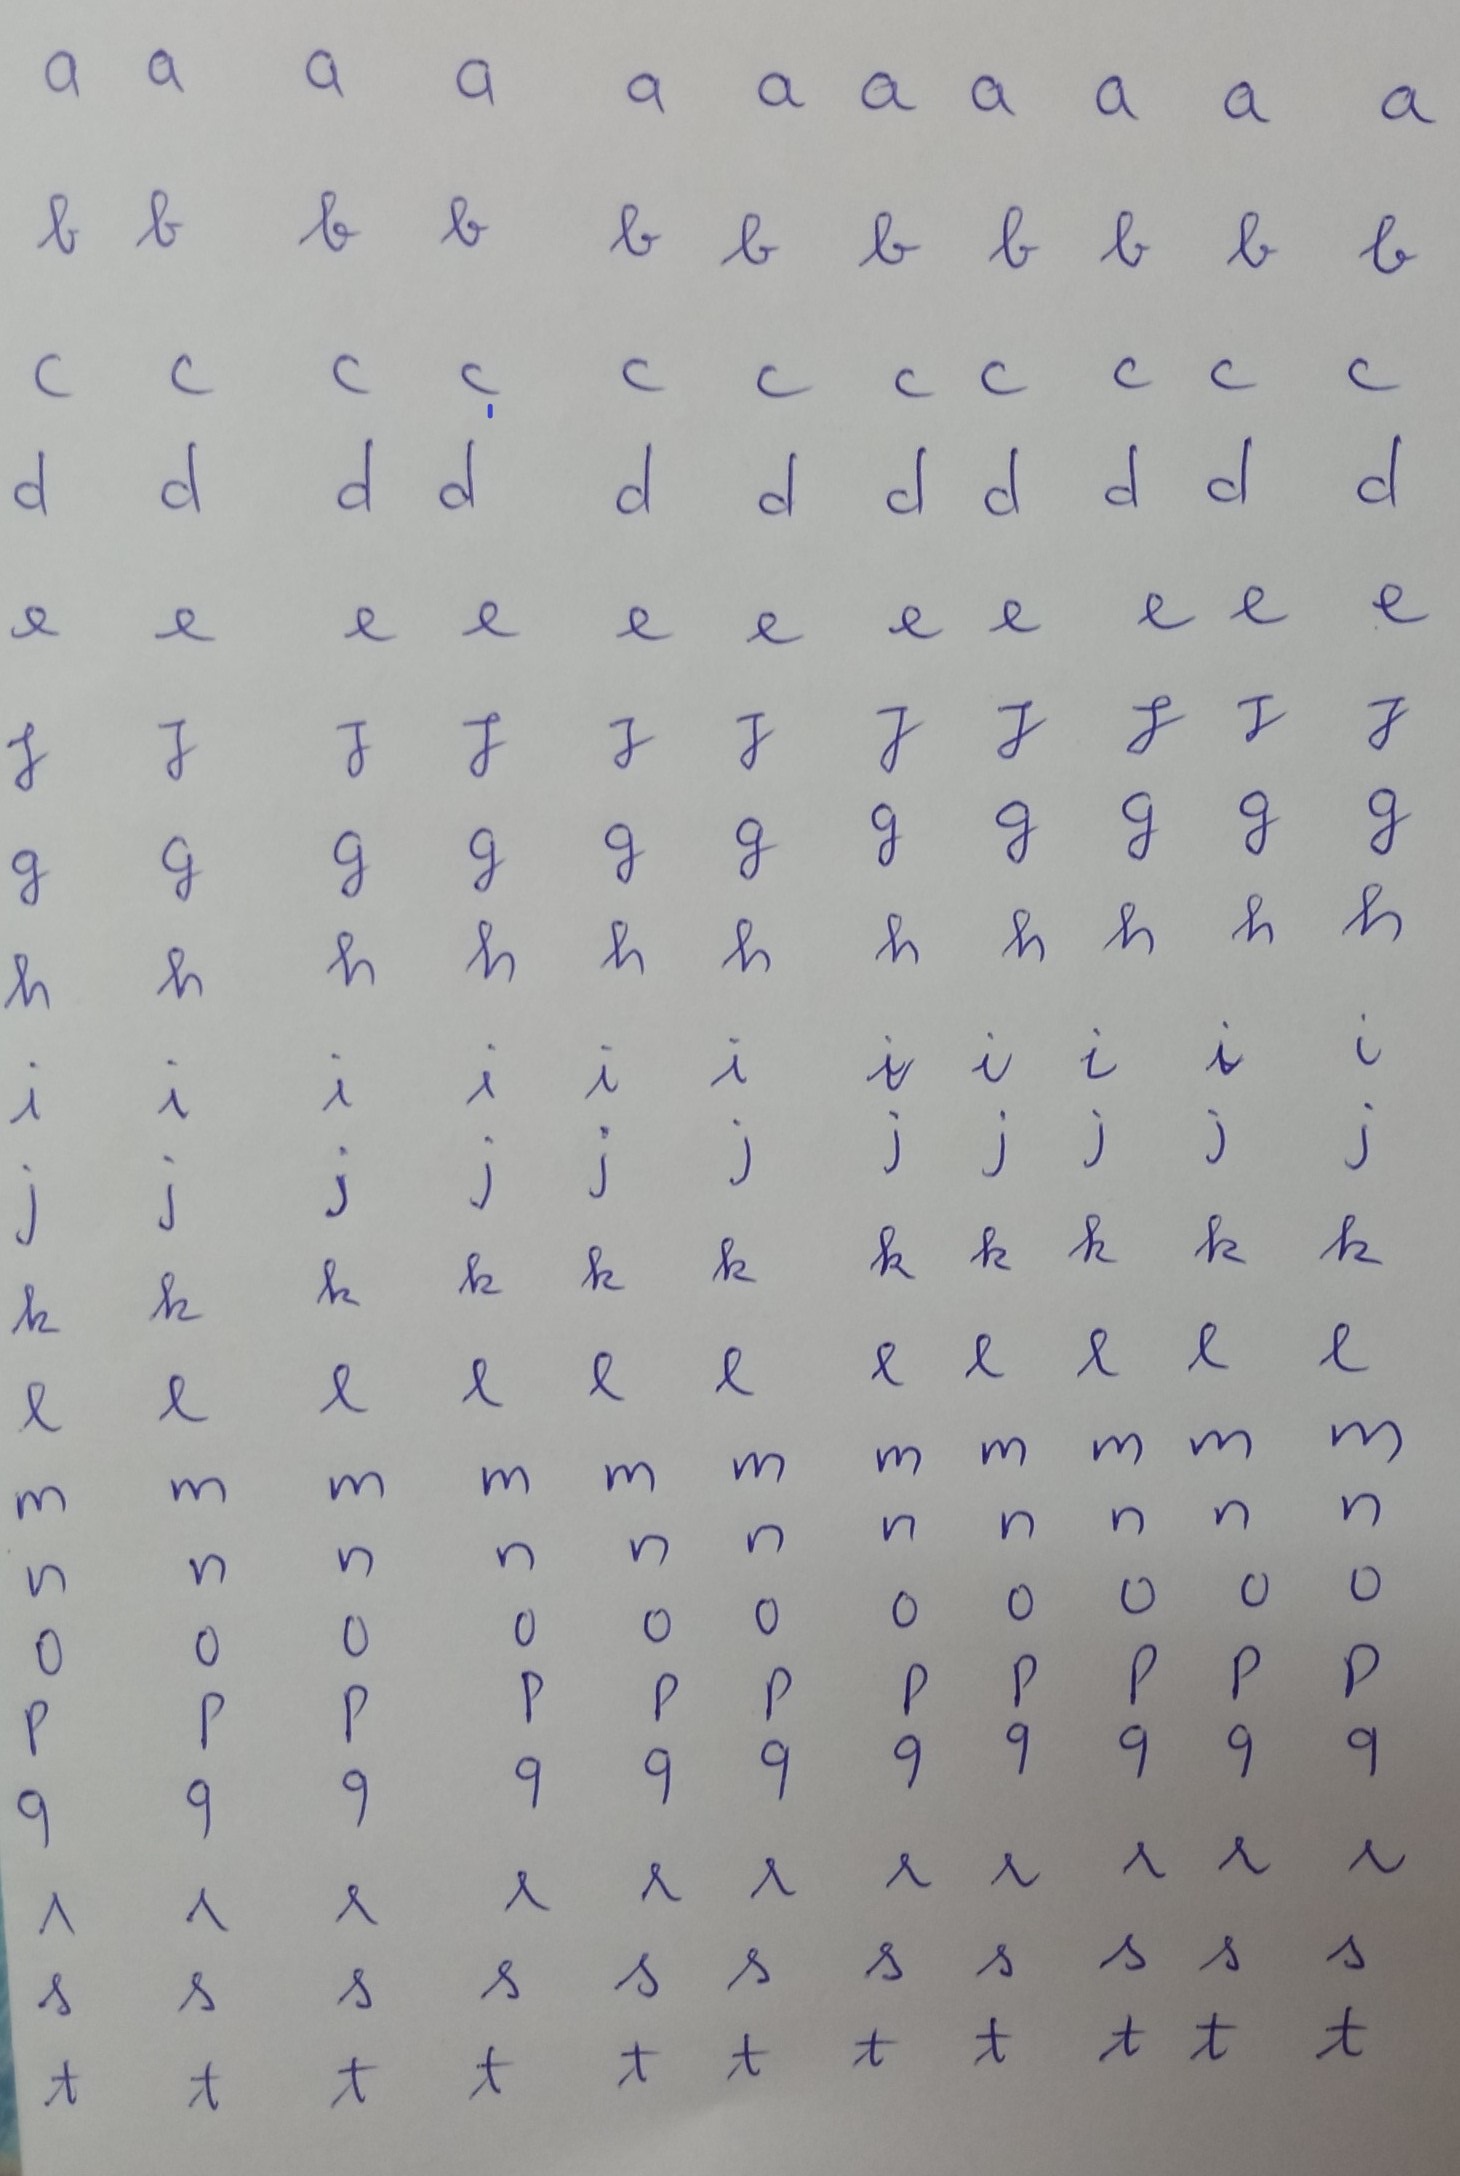 a a a a a a a a a a a
b b b b b b b b b b b
c c c c c c c c c c c
d d d d d d d d d d d
e e e e e e e e e e e
f f f f f f f f f f f
g g g g g g g g g g g
h h h h h h h h h h h
i i i i i i i i i i i
j j j j j j j j j j j
k k k k k k k k k k k
l l l l l l l l l l l
m m m m m m m m m m m
n n n n n n n n n n n
o o o o o o o o o o o
p p p p p p p p p p p
q q q q q q q q q q q
r r r r r r r r r r r
s s s s s s s s s s s
t t t t t t t t t t t